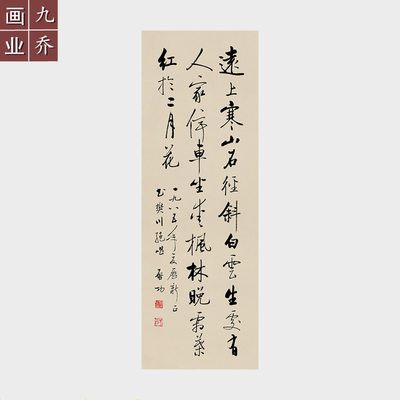 九乔
画业
遠上寒山石徑斜白雲生處有
人家停車坐愛楓林晚霜葉
紅於二月花
一九八五年夏歷新正
書樊川絕唱 啟功